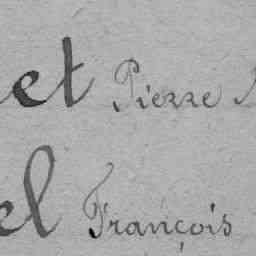 et Pierre
el François